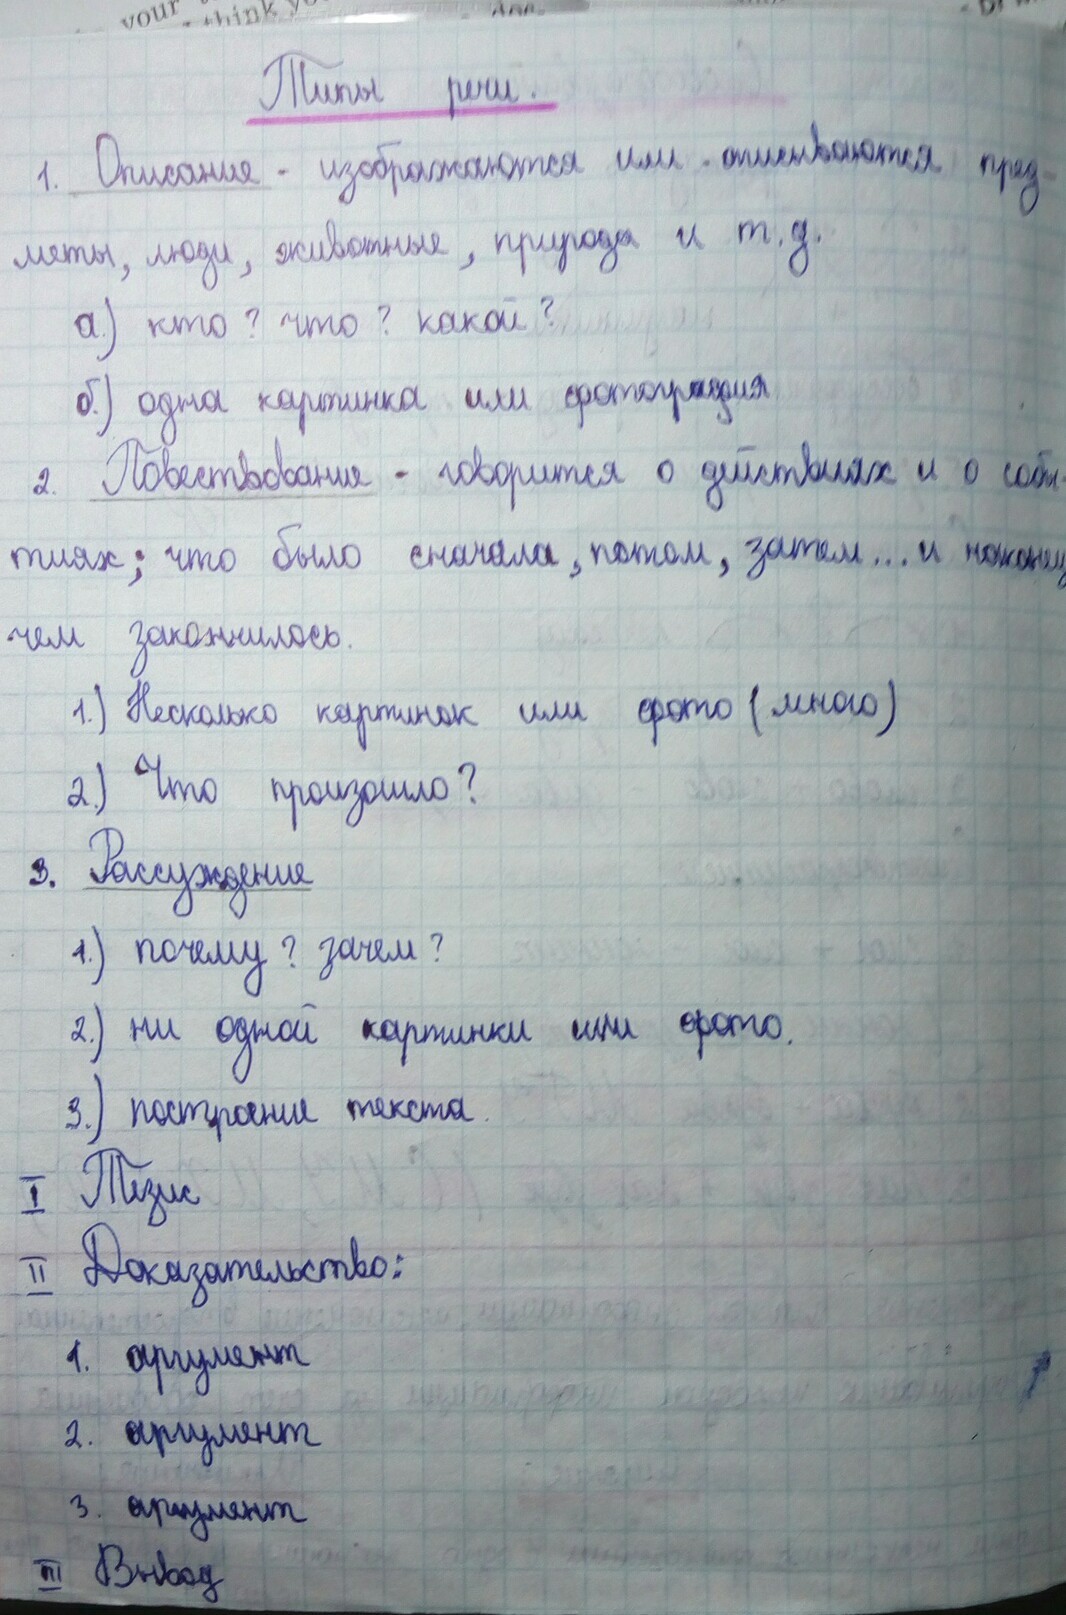 your
think yo
Типы речи.
1. Описание - изображаются или описываются пред-
меты, люди, животные, природа и т.д.
а.) кто? что? какой?
б.) одна картинка или фотография
2. Повествование - говорится о действиях и о собы-
тиях; что было сначала, потом, затем... и наконец
чем закончилось.
1.) Несколько картинок или фото (много)
2.) Что произошло?
3. Рассуждение
1.) почему? зачем?
2.) ни одной картинки или фото.
3.) построение текста.
I Тезис
II Доказательство:
1. аргумент
2. аргумент
3. аргумент
III Вывод